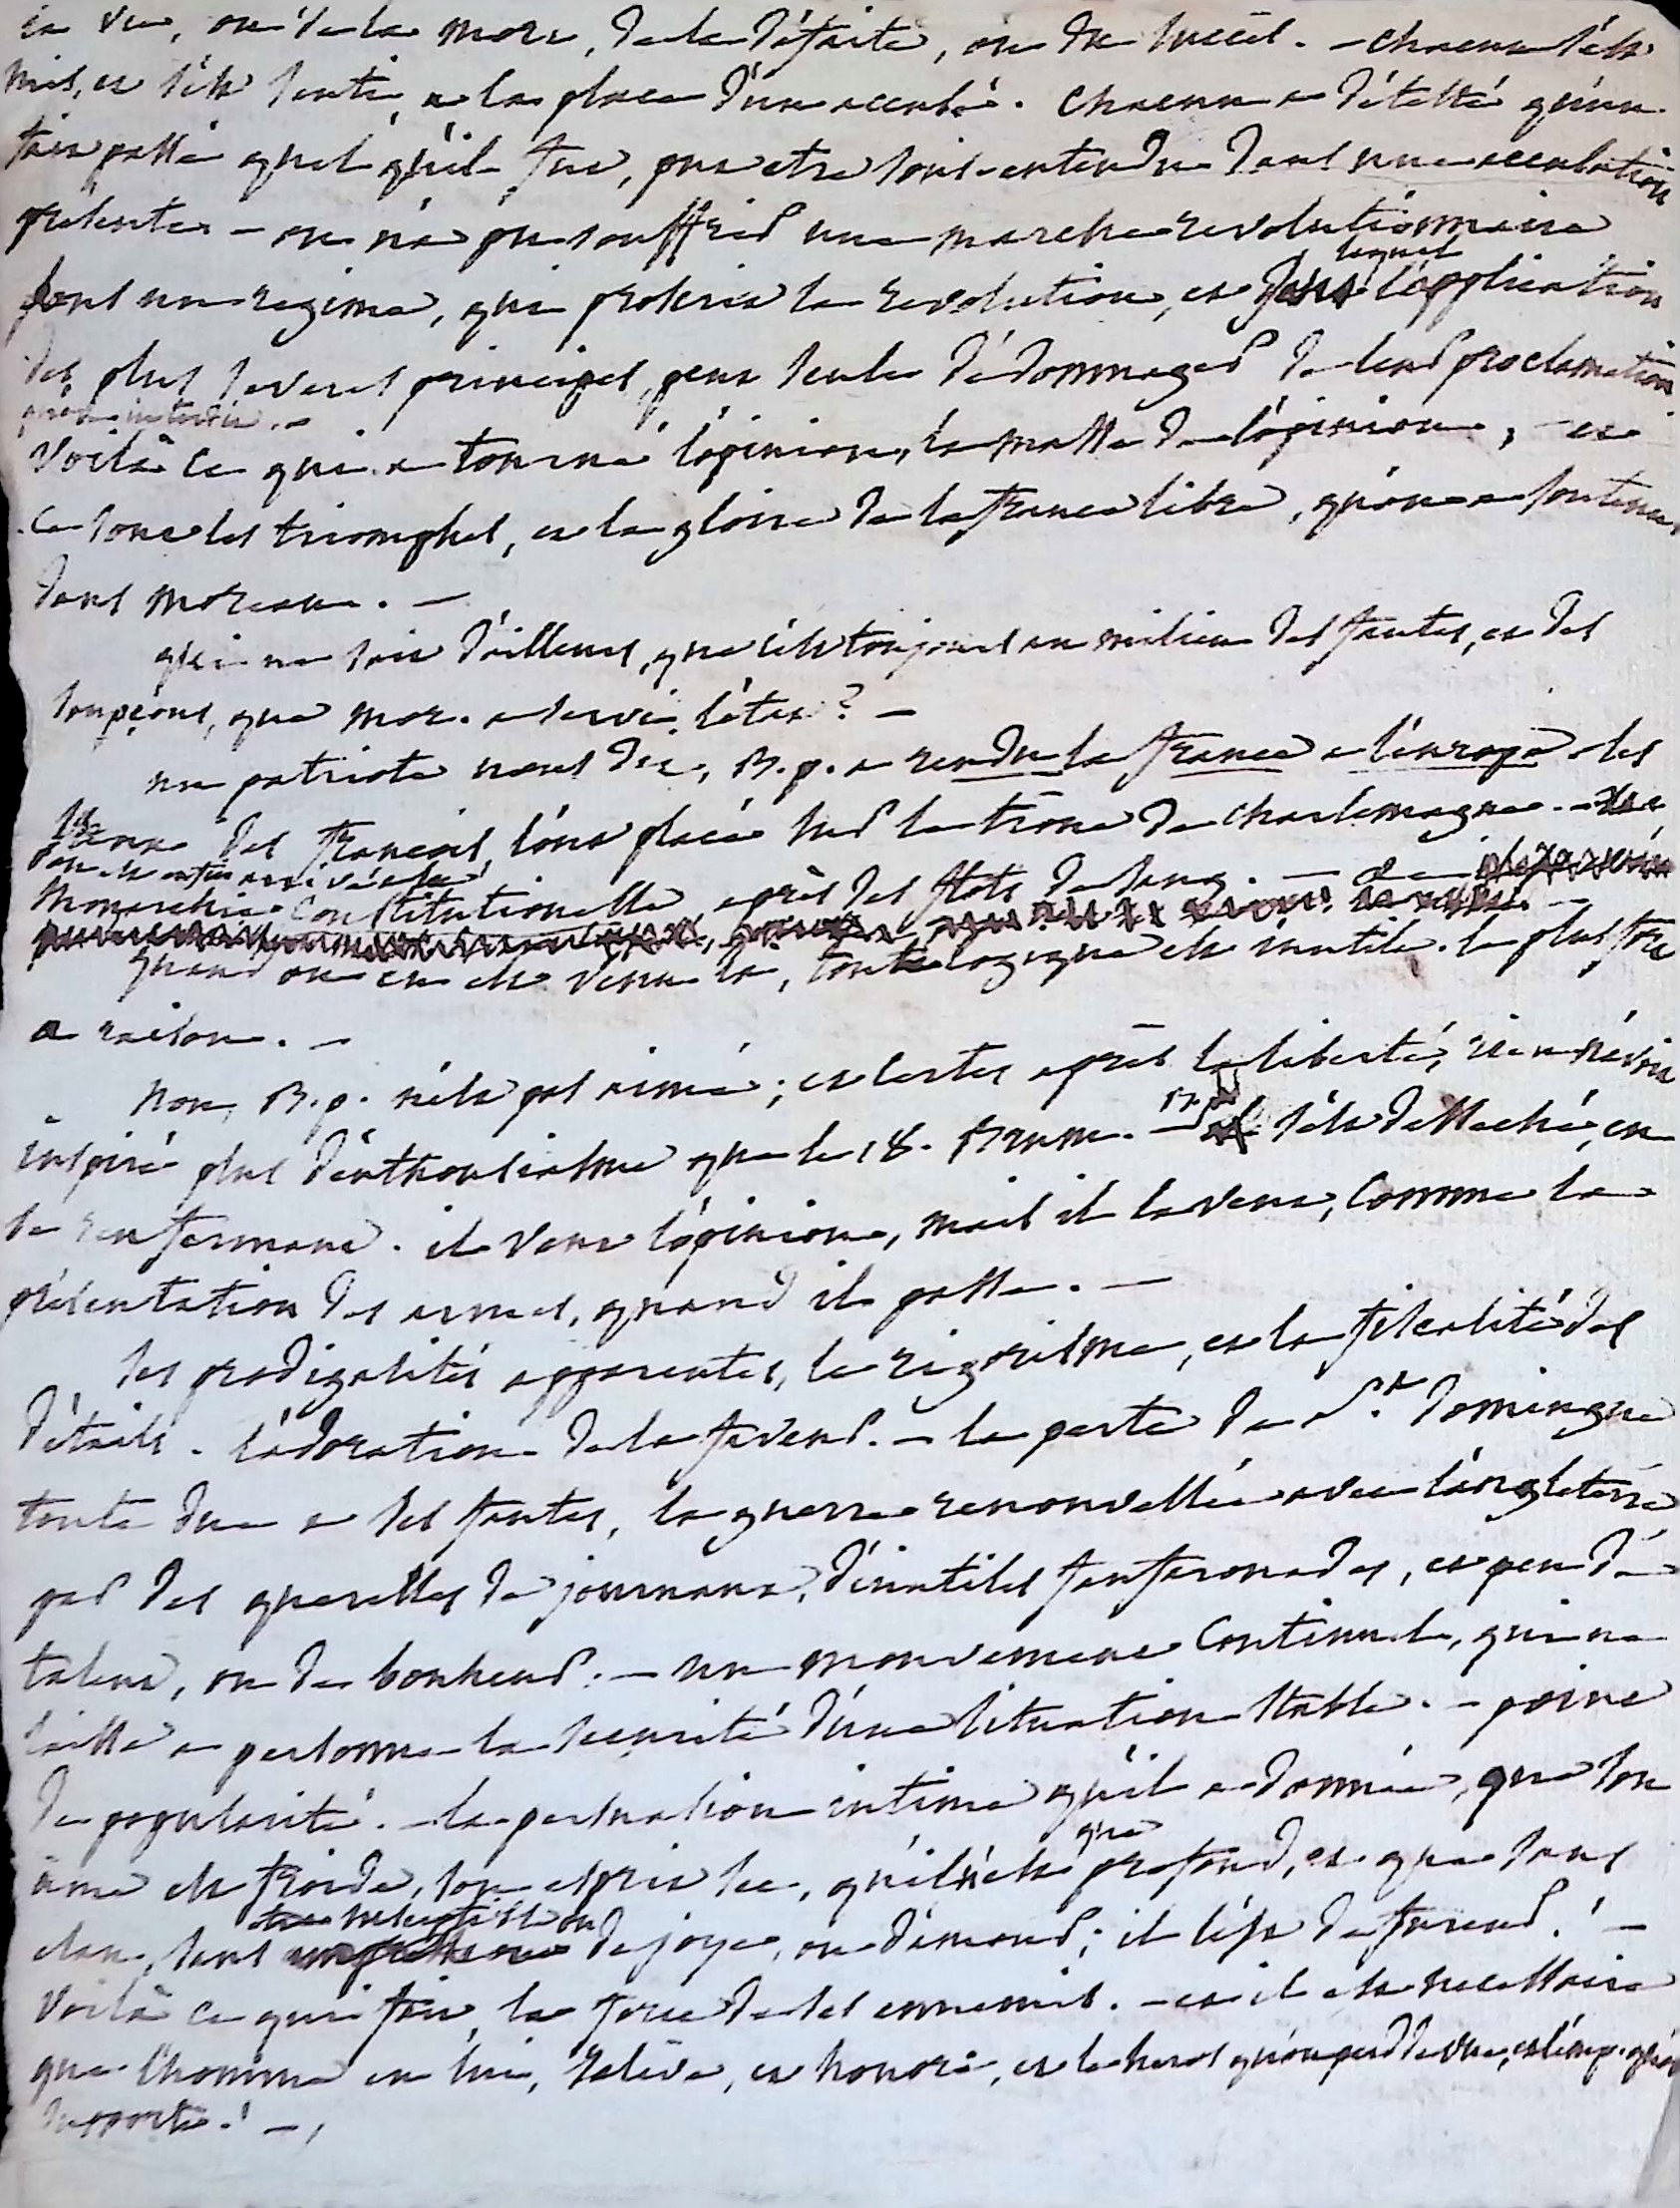 la vie, ou de la mort, de la défaite, ou du succès. - chacun s'est
mis, et s'est senti, a la place d'un accusé. chacun a détesté qu'un
fait passé quel qu'il fut, put etre sous-entendu dans une accusation
présente - on n'a pu souffrir une marche revolutionnaire
dans un regime, qui proscrit la revolution, et dans lequel l'application
des plus severes principes, peut seule dédommager de leur proclamation
qu'on interdit. -
voilà ce qui a tourné l'opinion, la masse de l'opinion, - et
ce sont les triomphes, et la gloire de la france libre, qu'on a soutenu
dans moreau. -
qui ne sait d'ailleurs, que c'est toujours au milieu des fautes, et des
soupçons, que mor. a servi l'état ? -
un patriote nous dit, B. p. a rendu la france a l'europe. les
français, l'ont placé sur le trône de charlemagne. -
on est enfin arrivé a la
monarchie constitutionelle, après des flots de sang. -
quand on en est venu là, toute logique est inutile. le plus fort
a raison. -
non, B. p. n'est pas aimé ; et certes après la liberté, rien n'avoit
inspiré plus d'enthousiasme que le 18. Brum. - B. p. s'est dessèché, en
se renfermant. il veut l'opinion, mais il la veut, comme la
présentation des armes, quand il passe. -
ses prodigalités apparentes, le rigorisme, et la fiscalité des
détails. l'adoration de la faveur. - la perte de St. Domingue
toute due a ses fautes, la guerre renouvellée avec l'angleterre
par des querelles de journaux, d'inutiles fanfaronades, et peu de
talent, ou de bonheur. - un mouvement continuel, qui ne
laisse a personne la securité d'une situation stable. - point
de popularité. - la persuasion intime qu'il a donnée, que son
âme est froide, son esprit sec, qu'il n'est que profond, et que sans
elan, sans susceptibilité de joye, ou d'amour ; il l'est de fureur ! -
voilà ce qui fait, la force de ses ennemis. - et il est necessaire
que l'homme en lui, relève, et honore, et le heros qu'on perd de vue, et l'emp. qu'on
supporte ! -